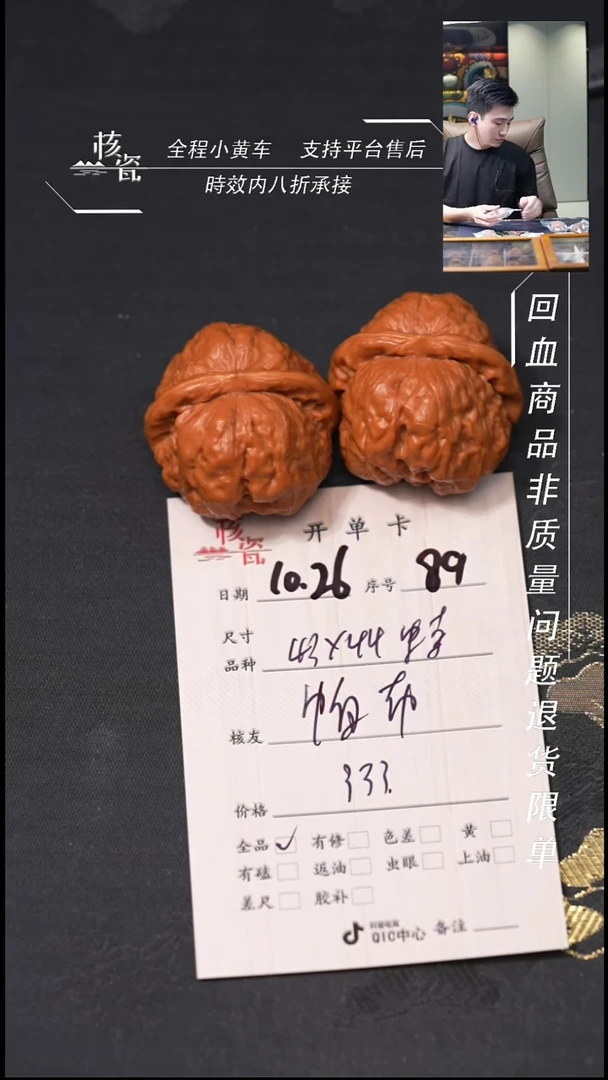 核瓷
全程小黄车 支持平台售后
時效内八折承接
回血商品非质量问题退货限单
核瓷
开单卡
日期 10.26 序号 89
尺寸
品种 43×44
核友
价格 333.
全品 ✓ 有修 色差 黄
有磕 返油 虫眼 上油
差尺 胶补
抖音电商
QIC中心 备注